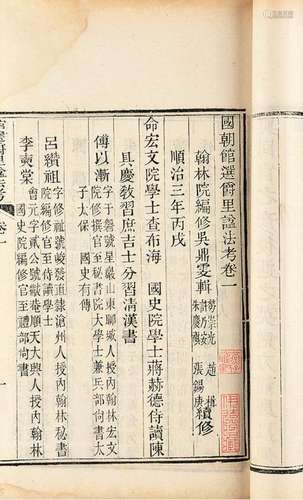 國朝館選爵里諡法考卷一
翰林院編修吳鼎雯輯
勞崇光
許乃安
朱慶祺
趙楫
張錫庚
續修
順治三年丙戌
命宏文院學士查布海 國史院學士蔣赫德侍讀陳
具慶教習庶吉士分習清漢書
傅以漸 字于磐號星巖山東聊城人授內翰林宏文
院修撰官至秘書院大學士兼兵部尚書太
子太保 國史有傳
呂纘祖 字修祉號峻發直隸滄州人授內翰林秘書
院編修官至侍讀學士
李奭棠 會元字貳公號獻庵順天大興人授內翰林
國史院編修官至禮部尚書
卷一